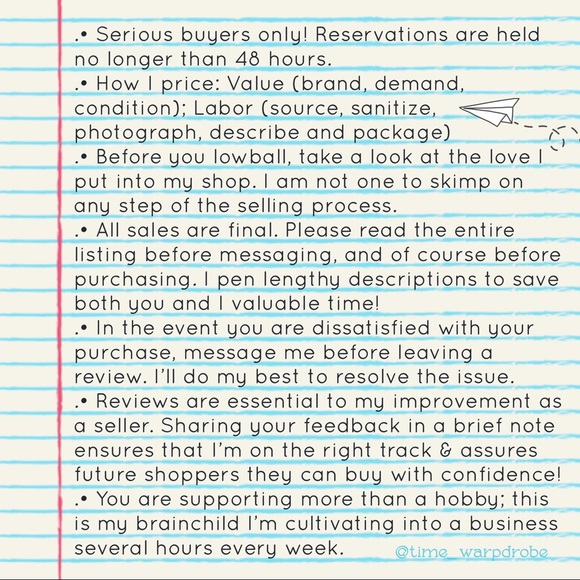 .• Serious buyers only! Reservations are held
no longer than 48 hours.
.• How I price: Value (brand, demand,
condition); Labor (source, sanitize,
photograph, describe and package)
.• Before you lowball, take a look at the love I
put into my shop. I am not one to skimp on
any step of the selling process.
.• All sales are final. Please read the entire
listing before messaging, and of course before
purchasing. I pen lengthy descriptions to save
both you and I valuable time!
.• In the event you are dissatisfied with your
purchase, message me before leaving a
review. I'll do my best to resolve the issue.
.• Reviews are essential to my improvement as
a seller. Sharing your feedback in a brief note
ensures that I'm on the right track & assures
future shoppers they can buy with confidence!
.• You are supporting more than a hobby; this
is my brainchild I'm cultivating into a business
several hours every week.
@time_warpdrobe